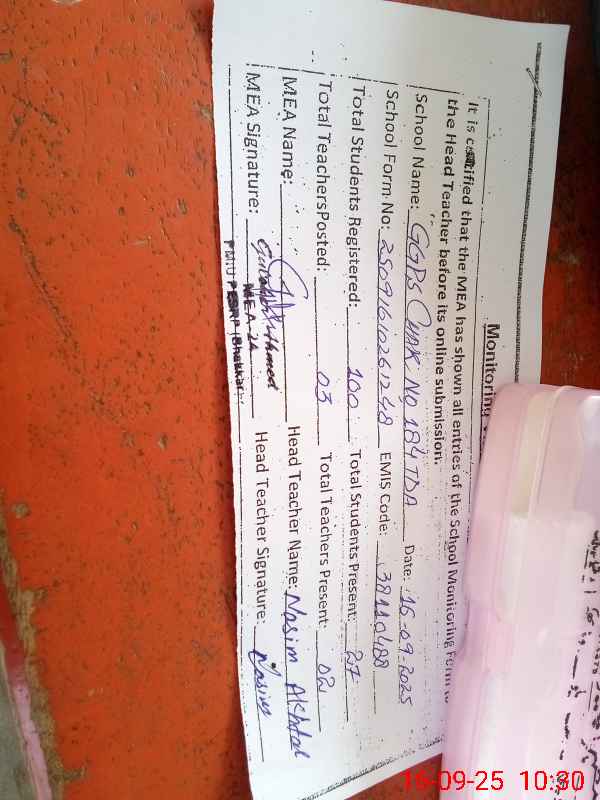 Monitoring
It is certified that the MEA has shown all entries of the School Monitoring Form to
the Head Teacher before its online submission.
School Name: GGPS CHAK No 184 TDA Date: 16-09-2025
School Form No: 25091610261248 EMIS Code: 38110488
Total Students Registered: 100 Total Students Present: 27
Total TeachersPosted: 03 Total Teachers Present: 02
MEA Name: Head Teacher Name: Nasim Akhtar
MEA Signature: Ahmed Head Teacher Signature: Nasim
MEA
PMIU PESRP Bhakkar
16-09-25 10:30